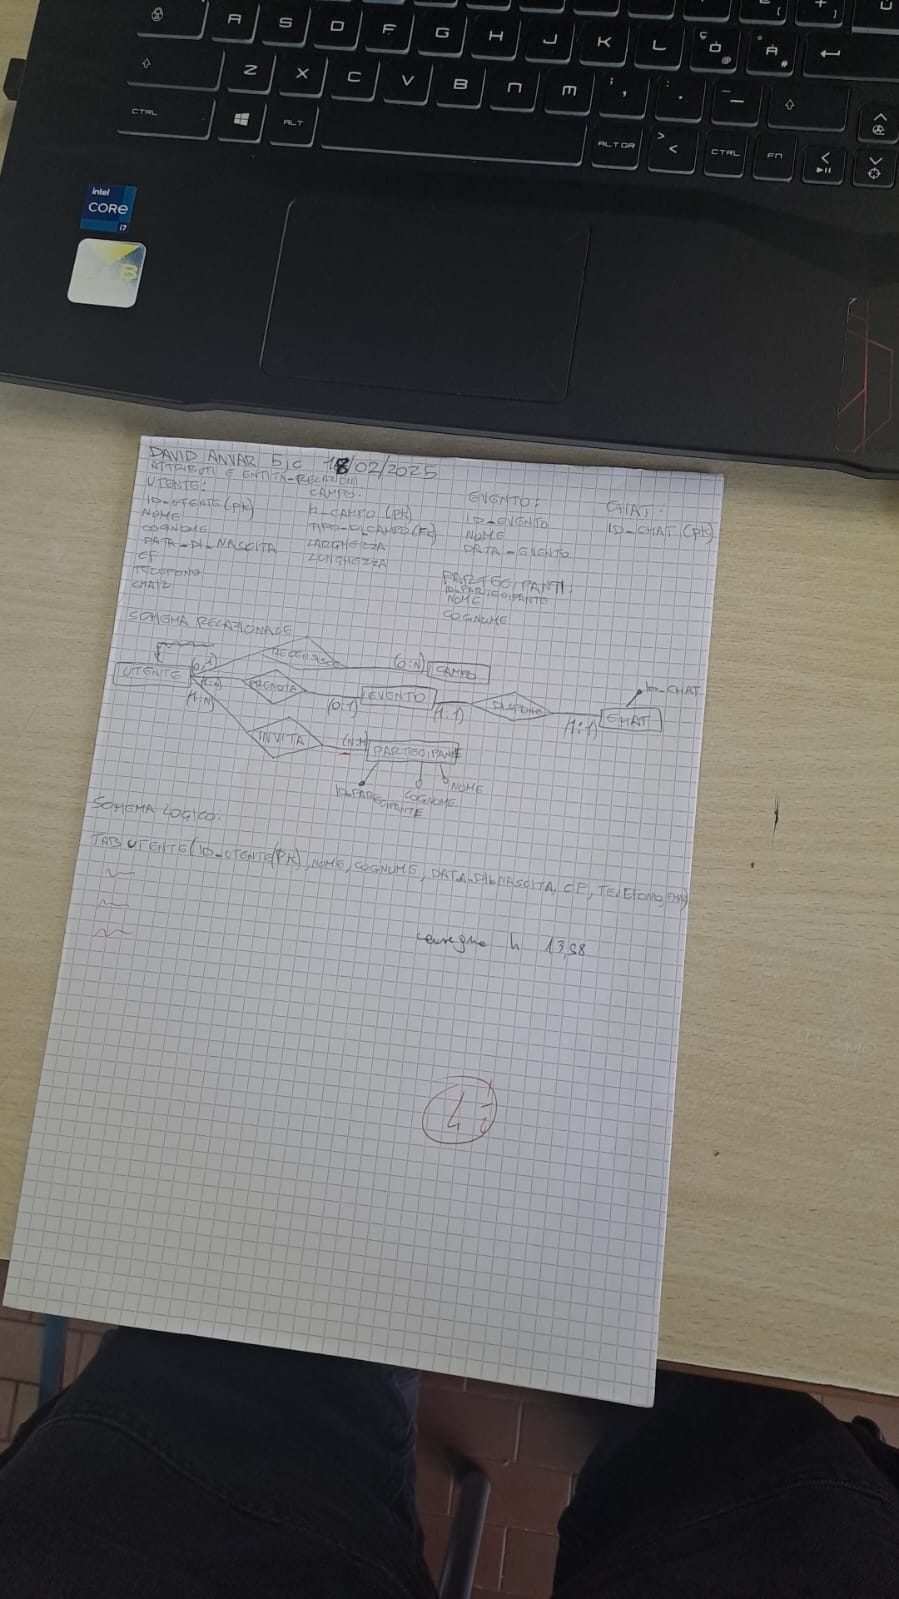 A S D F G H J K L Ò @ À #
Z X C V B N M ; , : . _ -
CTRL ALT ALT GR > < CTRL FN
intel
CORE
i7
DAVID ANVAR 5^C 18/02/2025
ATTRIBUTI E ENTITÀ-RELAZIONI
UTENTE:
ID_UTENTE(PK)
NOME
COGNOME
DATA_DI_NASCITA
CF
TELEFONO
EMAIL
CAMPO:
LARGHEZZA
LUNGHEZZA
EVENTO:
ID_EVENTO
NOME
DATA_EVENTO
CHAT:
ID_CHAT (PK)
PARTECIPANTI:
ID_PARTECIPANTE
NOME
COGNOME
SCHEMA RELAZIONALE
UTENTE (0,N) RECENSISCE (0:N) CAMPO
(1:N) PRENOTA (0:1) EVENTO (1:1) DISPONE (1:1) CHAT ID_CHAT
(1:N) INVITA (N:M) PARTECIPANTE
NOME
COGNOME
SCHEMA LOGICO:
TAB UTENTE (ID_UTENTE(PK), NOME, COGNOME, DATA_DI_NASCITA, CF, TELEFONO, EMAIL)
consegna h 13,58